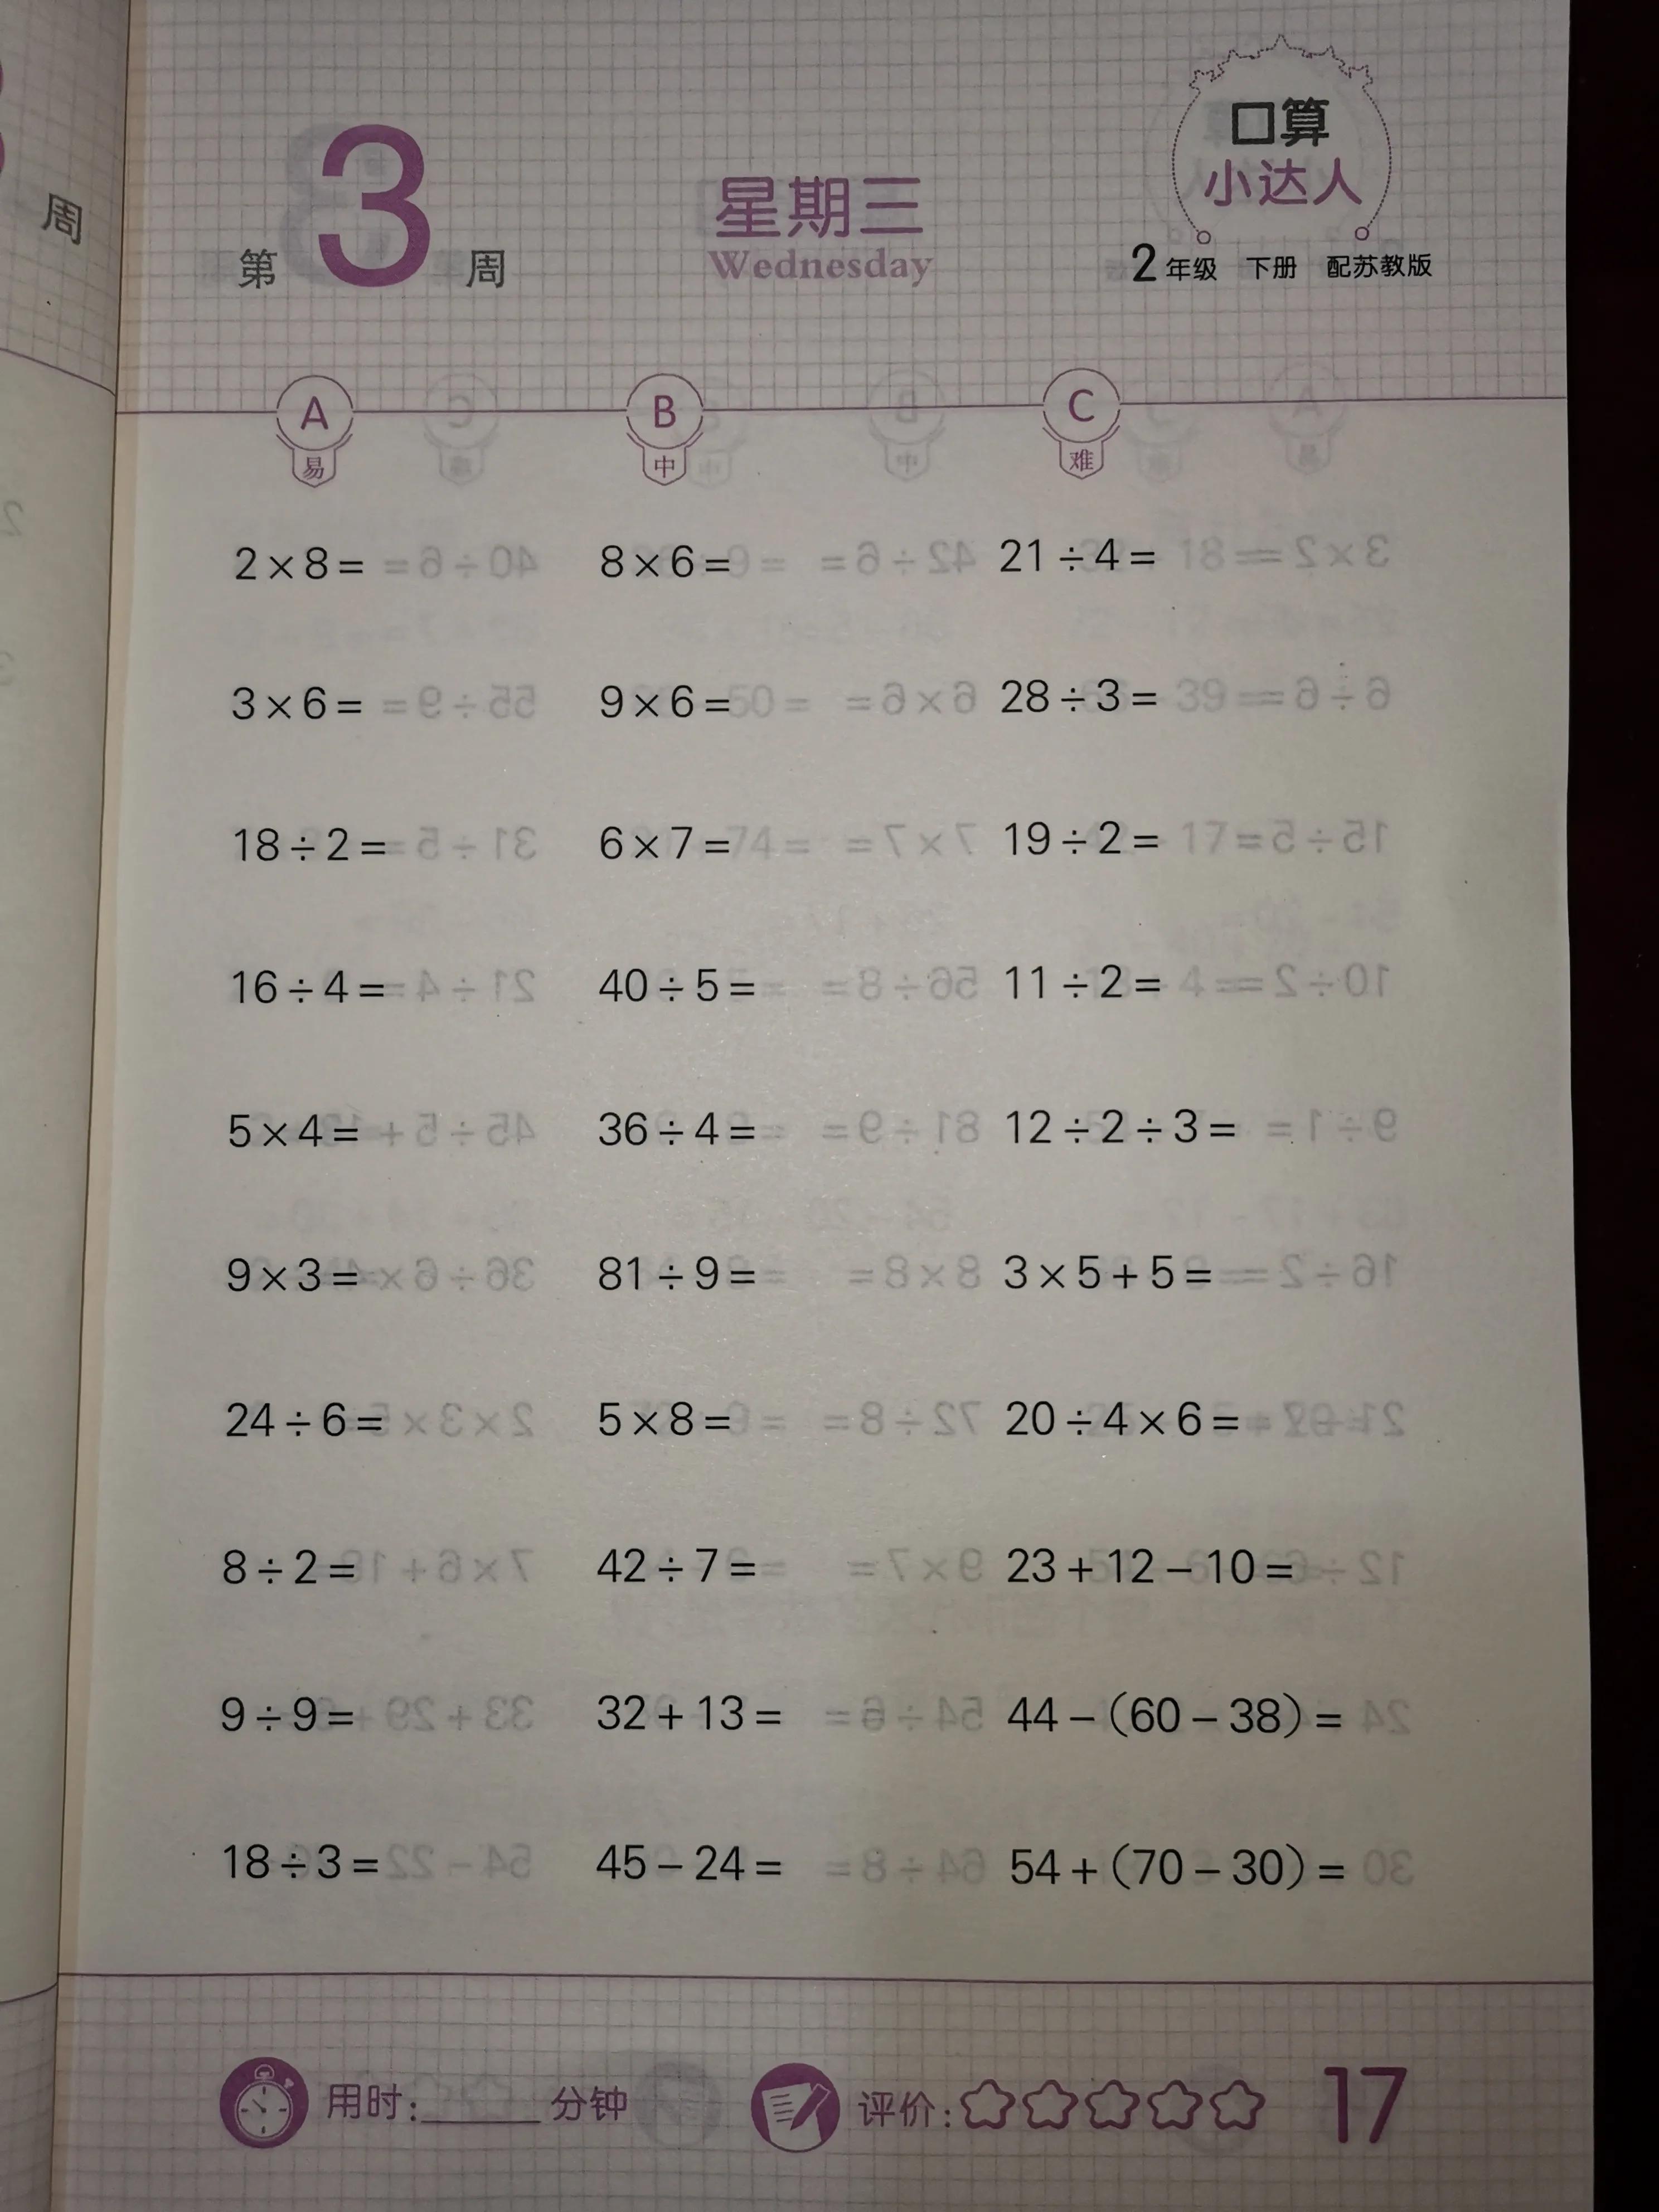 周
第3周
星期三
Wednesday
口算
小达人
2年级 下册 配苏教版
A B C
易 中 难
2×8= 8×6= 21÷4=
3×6= 9×6= 28÷3=
18÷2= 6×7= 19÷2=
16÷4= 40÷5= 11÷2=
5×4= 36÷4= 12÷2÷3=
9×3= 81÷9= 3×5+5=
24÷6= 5×8= 20÷4×6=
8÷2= 42÷7= 23+12−10=
9÷9= 32+13= 44−(60−38)=
18÷3= 45−24= 54+(70−30)=
用时:______分钟 评价: 17